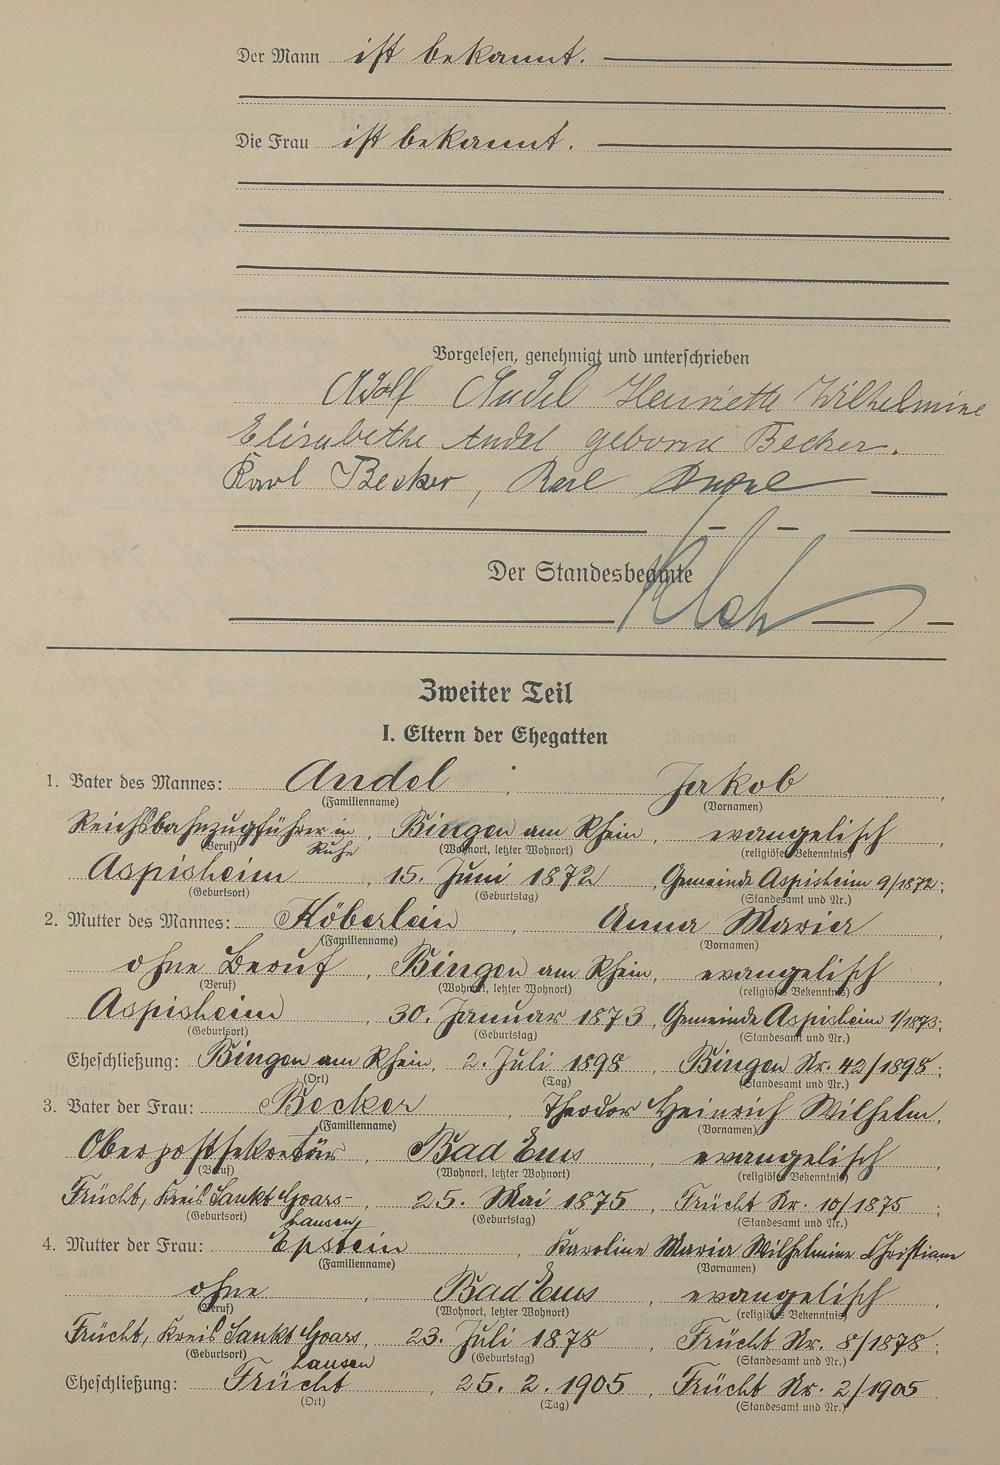 Der Mann ist bekannt.
Die Frau ist bekannt.
Vorgelesen, genehmigt und unterschrieben
Adolf Andel Henriette Wilhelmine
Elisabethe Andel geborne Becker.
Karl Becker, Karl Andel
Der Standesbeamte
Zweiter Teil
I. Eltern der Ehegatten
1. Vater des Mannes: Andel, Jakob,
(Familienname) (Vornamen)
Reichsbahnzugführer in Ruhe, Bingen am Rhein, evangelisch,
(Beruf) (Wohnort, letzter Wohnort) (religiöses Bekenntnis)
Aspisheim, 15. Juni 1872, Gemeinde Aspisheim 9/1872;
(Geburtsort) (Geburtstag) (Standesamt und Nr.)
2. Mutter des Mannes: Höberlein, Anna Maria,
(Familienname) (Vornamen)
ohne Beruf, Bingen am Rhein, evangelisch,
(Beruf) (Wohnort, letzter Wohnort) (religiöses Bekenntnis)
Aspisheim, 30. Januar 1873, Gemeinde Aspisheim 1/1873;
(Geburtsort) (Geburtstag) (Standesamt und Nr.)
Eheschließung: Bingen am Rhein, 2. Juli 1898, Bingen Nr. 42/1898;
(Ort) (Tag) (Standesamt und Nr.)
3. Vater der Frau: Becker, Theodor Heinrich Wilhelm,
(Familienname) (Vornamen)
Oberpostsekretär, Bad Ems, evangelisch,
(Beruf) (Wohnort, letzter Wohnort) (religiöses Bekenntnis)
Frücht, Kreis Sankt Goars-hausen, 25. Mai 1875, Frücht Nr. 10/1875;
(Geburtsort) (Geburtstag) (Standesamt und Nr.)
4. Mutter der Frau: Epstein, Karoline Maria Wilhelmine Christiane
(Familienname) (Vornamen)
ohne, Bad Ems, evangelisch,
(Beruf) (Wohnort, letzter Wohnort) (religiöses Bekenntnis)
Frücht, Kreis Sankt Goarshausen, 23. Juli 1878, Frücht Nr. 8/1878;
(Geburtsort) (Geburtstag) (Standesamt und Nr.)
Eheschließung: Frücht, 25. 2. 1905, Frücht Nr. 2/1905.
(Ort) (Tag) (Standesamt und Nr.)